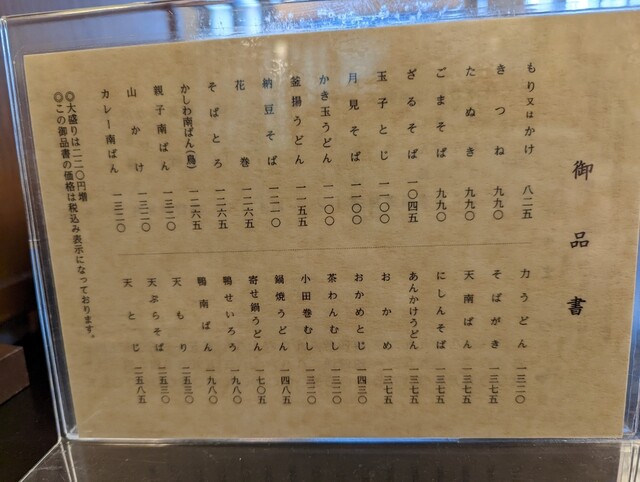 御品書
もり又はかけ 八二五
きつね 九九〇
たぬき 九九〇
ごまそば 九九〇
ざるそば 一〇四五
玉子とじ 一一〇〇
月見そば 一一〇〇
かき玉うどん 一一〇〇
釜揚うどん 一一五五
納豆そば 一二一〇
花巻 一二六五
そばとろ 一二六五
かしわ南ばん(鳥) 一二六五
親子南ばん 一三二〇
山かけ 一三二〇
カレー南ばん 一三二〇
力うどん 一三二〇
そばがき 一三七五
天南ばん 一三七五
にしんそば 一三七五
あんかけうどん 一三七五
おかめ 一三七五
おかめとじ 一四三〇
茶わんむし 一三二〇
小田巻むし 一三二〇
鍋焼うどん 一四八五
寄せ鍋うどん 一七〇五
鴨せいろう 一九八〇
鴨南ばん 一九八〇
天もり 二五三〇
天ぷらそば 二五三〇
天とじ 二五八五
◎大盛りは二二〇円増
◎この御品書の価格は税込み表示になっております。